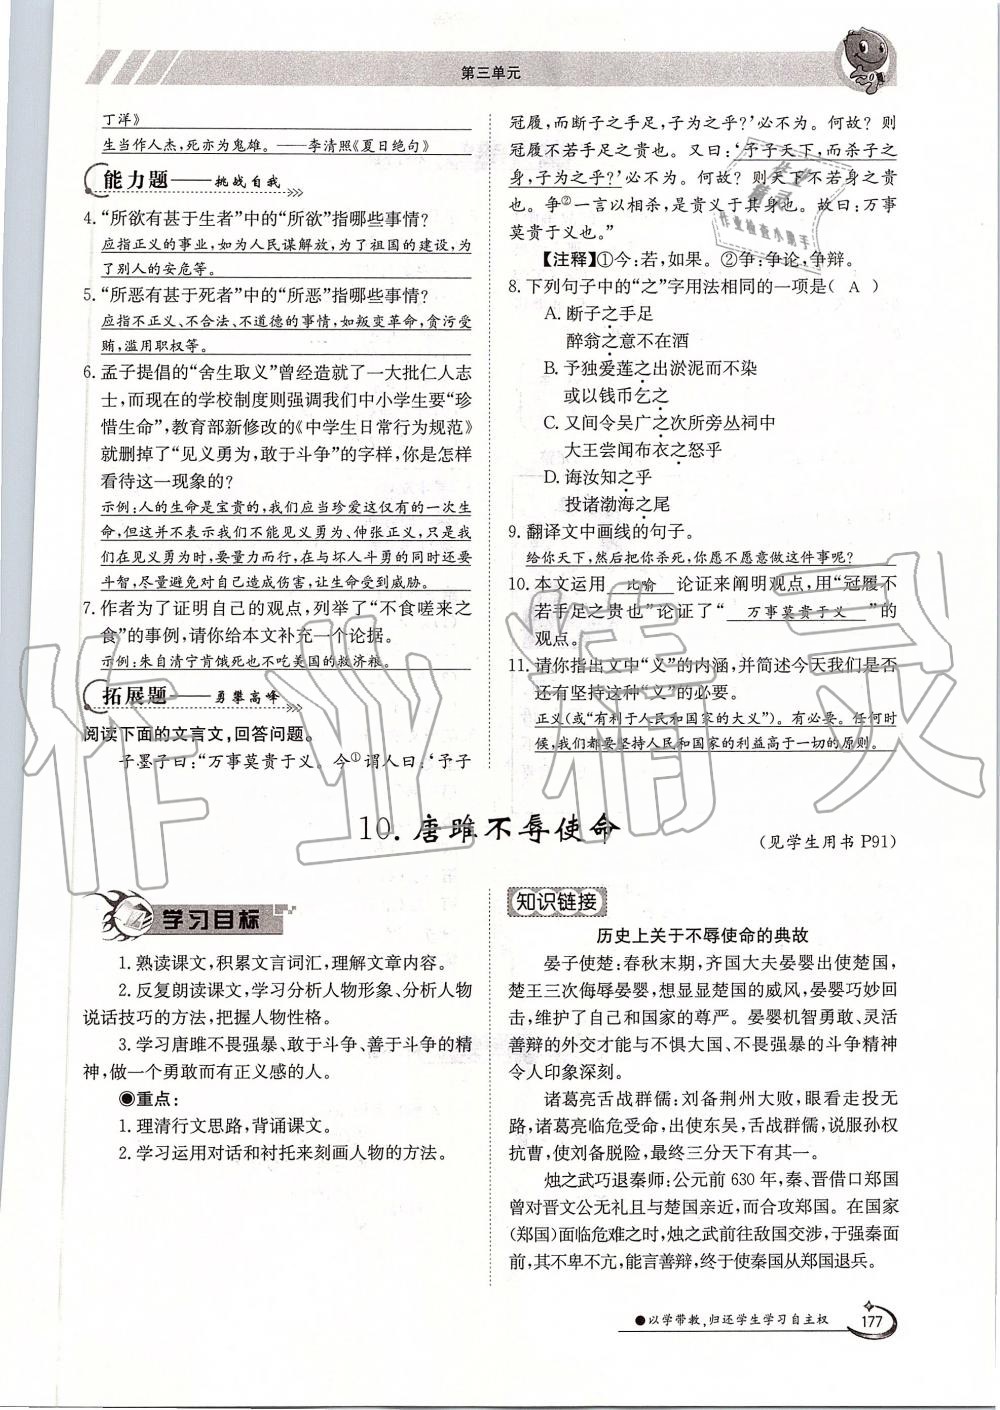 第三单元
丁洋》
生当作人杰,死亦为鬼雄。——李清照《夏日绝句》
能力题——挑战自我
4. “所欲有甚于生者”中的“所欲”指哪些事情?
应指正义的事业,如为人民谋解放,为了祖国的建设,为
了别人的安危等。
5. “所恶有甚于死者”中的“所恶”指哪些事情?
应指不正义、不合法、不道德的事情,如叛变革命,贪污受
贿,滥用职权等。
6. 孟子提倡的“舍生取义”曾经造就了一大批仁人志
士,而现在的学校制度则强调我们中小学生要“珍
惜生命”,教育部新修改的《中学生日常行为规范》
就删掉了“见义勇为,敢于斗争”的字样,你是怎样
看待这一现象的?
示例:人的生命是宝贵的,我们应当珍爱这仅有的一次生
命,但这并不表示我们不能见义勇为、伸张正义,只是我
们在见义勇为时,要量力而行,在与坏人斗勇的同时还要
斗智,尽量避免对自己造成伤害,让生命受到威胁。
7. 作者为了证明自己的观点,列举了“不食嗟来之
食”的事例,请你给本文补充一个论据。
示例:朱自清宁肯饿死也不吃美国的救济粮。
拓展题——勇攀高峰
阅读下面的文言文,回答问题。
子墨子曰:“万事莫贵于义。今①谓人曰:‘予子
冠履,而断子之手足,子为之乎?’必不为。何故?则
冠履不若手足之贵也。又曰:‘予子天下,而杀子之
身,子为之乎?’必不为。何故?则天下不若身之贵
也。争②一言以相杀,是贵义于其身也。故曰:万事
莫贵于义也。”
【注释】①今:若,如果。②争:争论,争辩。
8. 下列句子中的“之”字用法相同的一项是( A )
A. 断子之手足
醉翁之意不在酒
B. 予独爱莲之出淤泥而不染
或以钱币乞之
C. 又间令吴广之次所旁丛祠中
大王尝闻布衣之怒乎
D. 诲汝知之乎
投诸渤海之尾
9. 翻译文中画线的句子。
给你天下,然后把你杀死,你愿不愿意做这件事呢?
10. 本文运用 比喻 论证来阐明观点,用“冠履不
若手足之贵也”论证了“ 万事莫贵于义 ”的
观点。
11. 请你指出文中“义”的内涵,并简述今天我们是否
还有坚持这种“义”的必要。
正义(或“有利于人民和国家的大义”)。有必要。任何时
候,我们都要坚持人民和国家的利益高于一切的原则。
10. 唐雎不辱使命
(见学生用书 P91)
学习目标
1. 熟读课文,积累文言词汇,理解文章内容。
2. 反复朗读课文,学习分析人物形象、分析人物
说话技巧的方法,把握人物性格。
3. 学习唐雎不畏强暴、敢于斗争、善于斗争的精
神,做一个勇敢而有正义感的人。
●重点:
1. 理清行文思路,背诵课文。
2. 学习运用对话和衬托来刻画人物的方法。
知识链接
历史上关于不辱使命的典故
晏子使楚:春秋末期,齐国大夫晏婴出使楚国,
楚王三次侮辱晏婴,想显显楚国的威风,晏婴巧妙回
击,维护了自己和国家的尊严。晏婴机智勇敢、灵活
善辩的外交才能与不惧大国、不畏强暴的斗争精神
令人印象深刻。
诸葛亮舌战群儒:刘备荆州大败,眼看走投无
路,诸葛亮临危受命,出使东吴,舌战群儒,说服孙权
抗曹,使刘备脱险,最终三分天下有其一。
烛之武巧退秦师:公元前 630 年,秦、晋借口郑国
曾对晋文公无礼且与楚国亲近,而合攻郑国。在国家
(郑国)面临危难之时,烛之武前往敌国交涉,于强秦面
前,其不卑不亢,能言善辩,终于使秦国从郑国退兵。
●以学带教,归还学生学习自主权
177
作业精灵
作业检查小助手